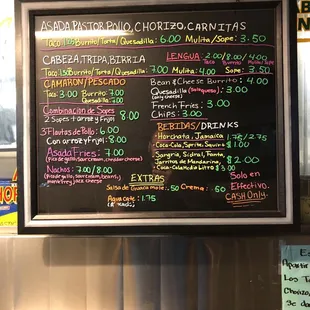 ASADA, PASTOR, POLLO, CHORIZO, CARNITAS
Taco 1.25 Burrito/Torta/Quesadilla 6.00 Mulita/Sope 3.50
CABEZA, TRIPA, BIRRIA
Taco 1.50 Burrito/Torta/Quesadilla 7.00
LENGUA: 2.00/8.00/4.00
Taco Burrito/Torta Mulita/Sope
Mulita 4.00 Sope: 3.50
CAMARON/PESCADO
Taco 3.00 Burrito 7.00
Quesadilla 7.00
Combinación de Sopes
2 Sopes + arroz y Frijol
8.00
3 Flautas de Pollo: 6.00
Con arroz y Frijol 8.00
Asada Fries: 7.00
(Pico de gallo, sour cream, cheddar cheese)
Nachos: 7.00 / 8.00
Bean & Cheese Burrito: 4.00
Quesadilla
(only cheese)
3.00
French Fries: 3.00
Chips: 3.00
BEBIDAS/DRINKS
Horchata, Jamaica 1.75/2.75
Coca-Cola, Sprite, Squirt $1.00
Sangria, Sidral, Fanta,
Jarritos de Mandarina,
Coca-Cola Medio Litro
$2.00
EXTRAS
Salsa de Guacamole .50 Crema .50
Aguacate 1.75
Solo en
Efectivo.
CASH Only.